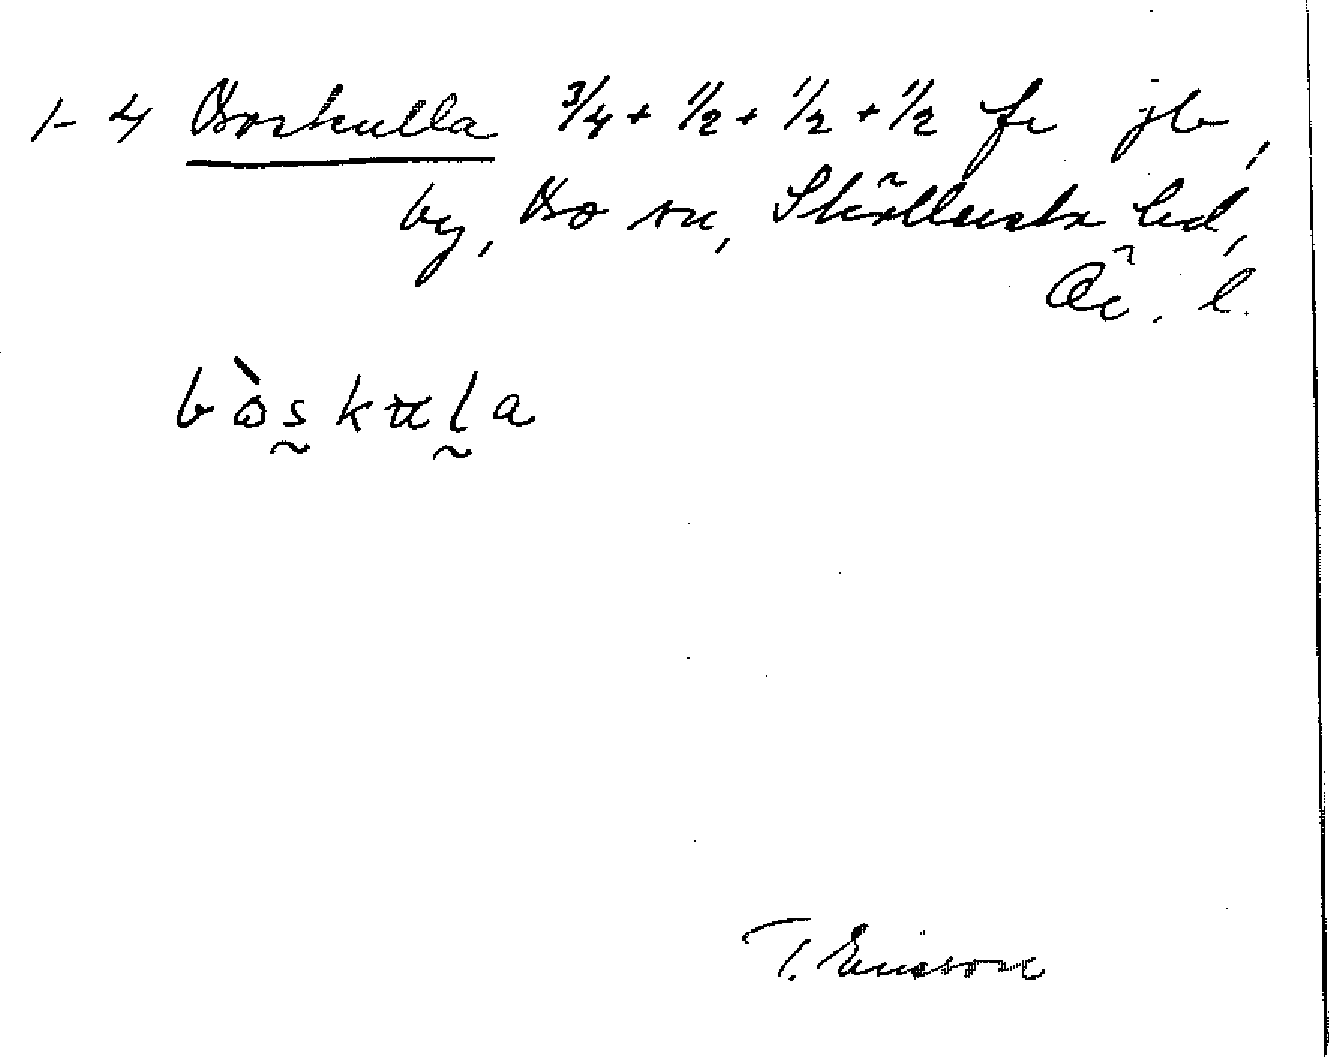 1-4 Boskulla 3/4 + 1/2 + 1/2 + 1/2 fr jb,
by, Bo sn, Sköllersta hd,
Ör. l.
bòskula
T. Ericson